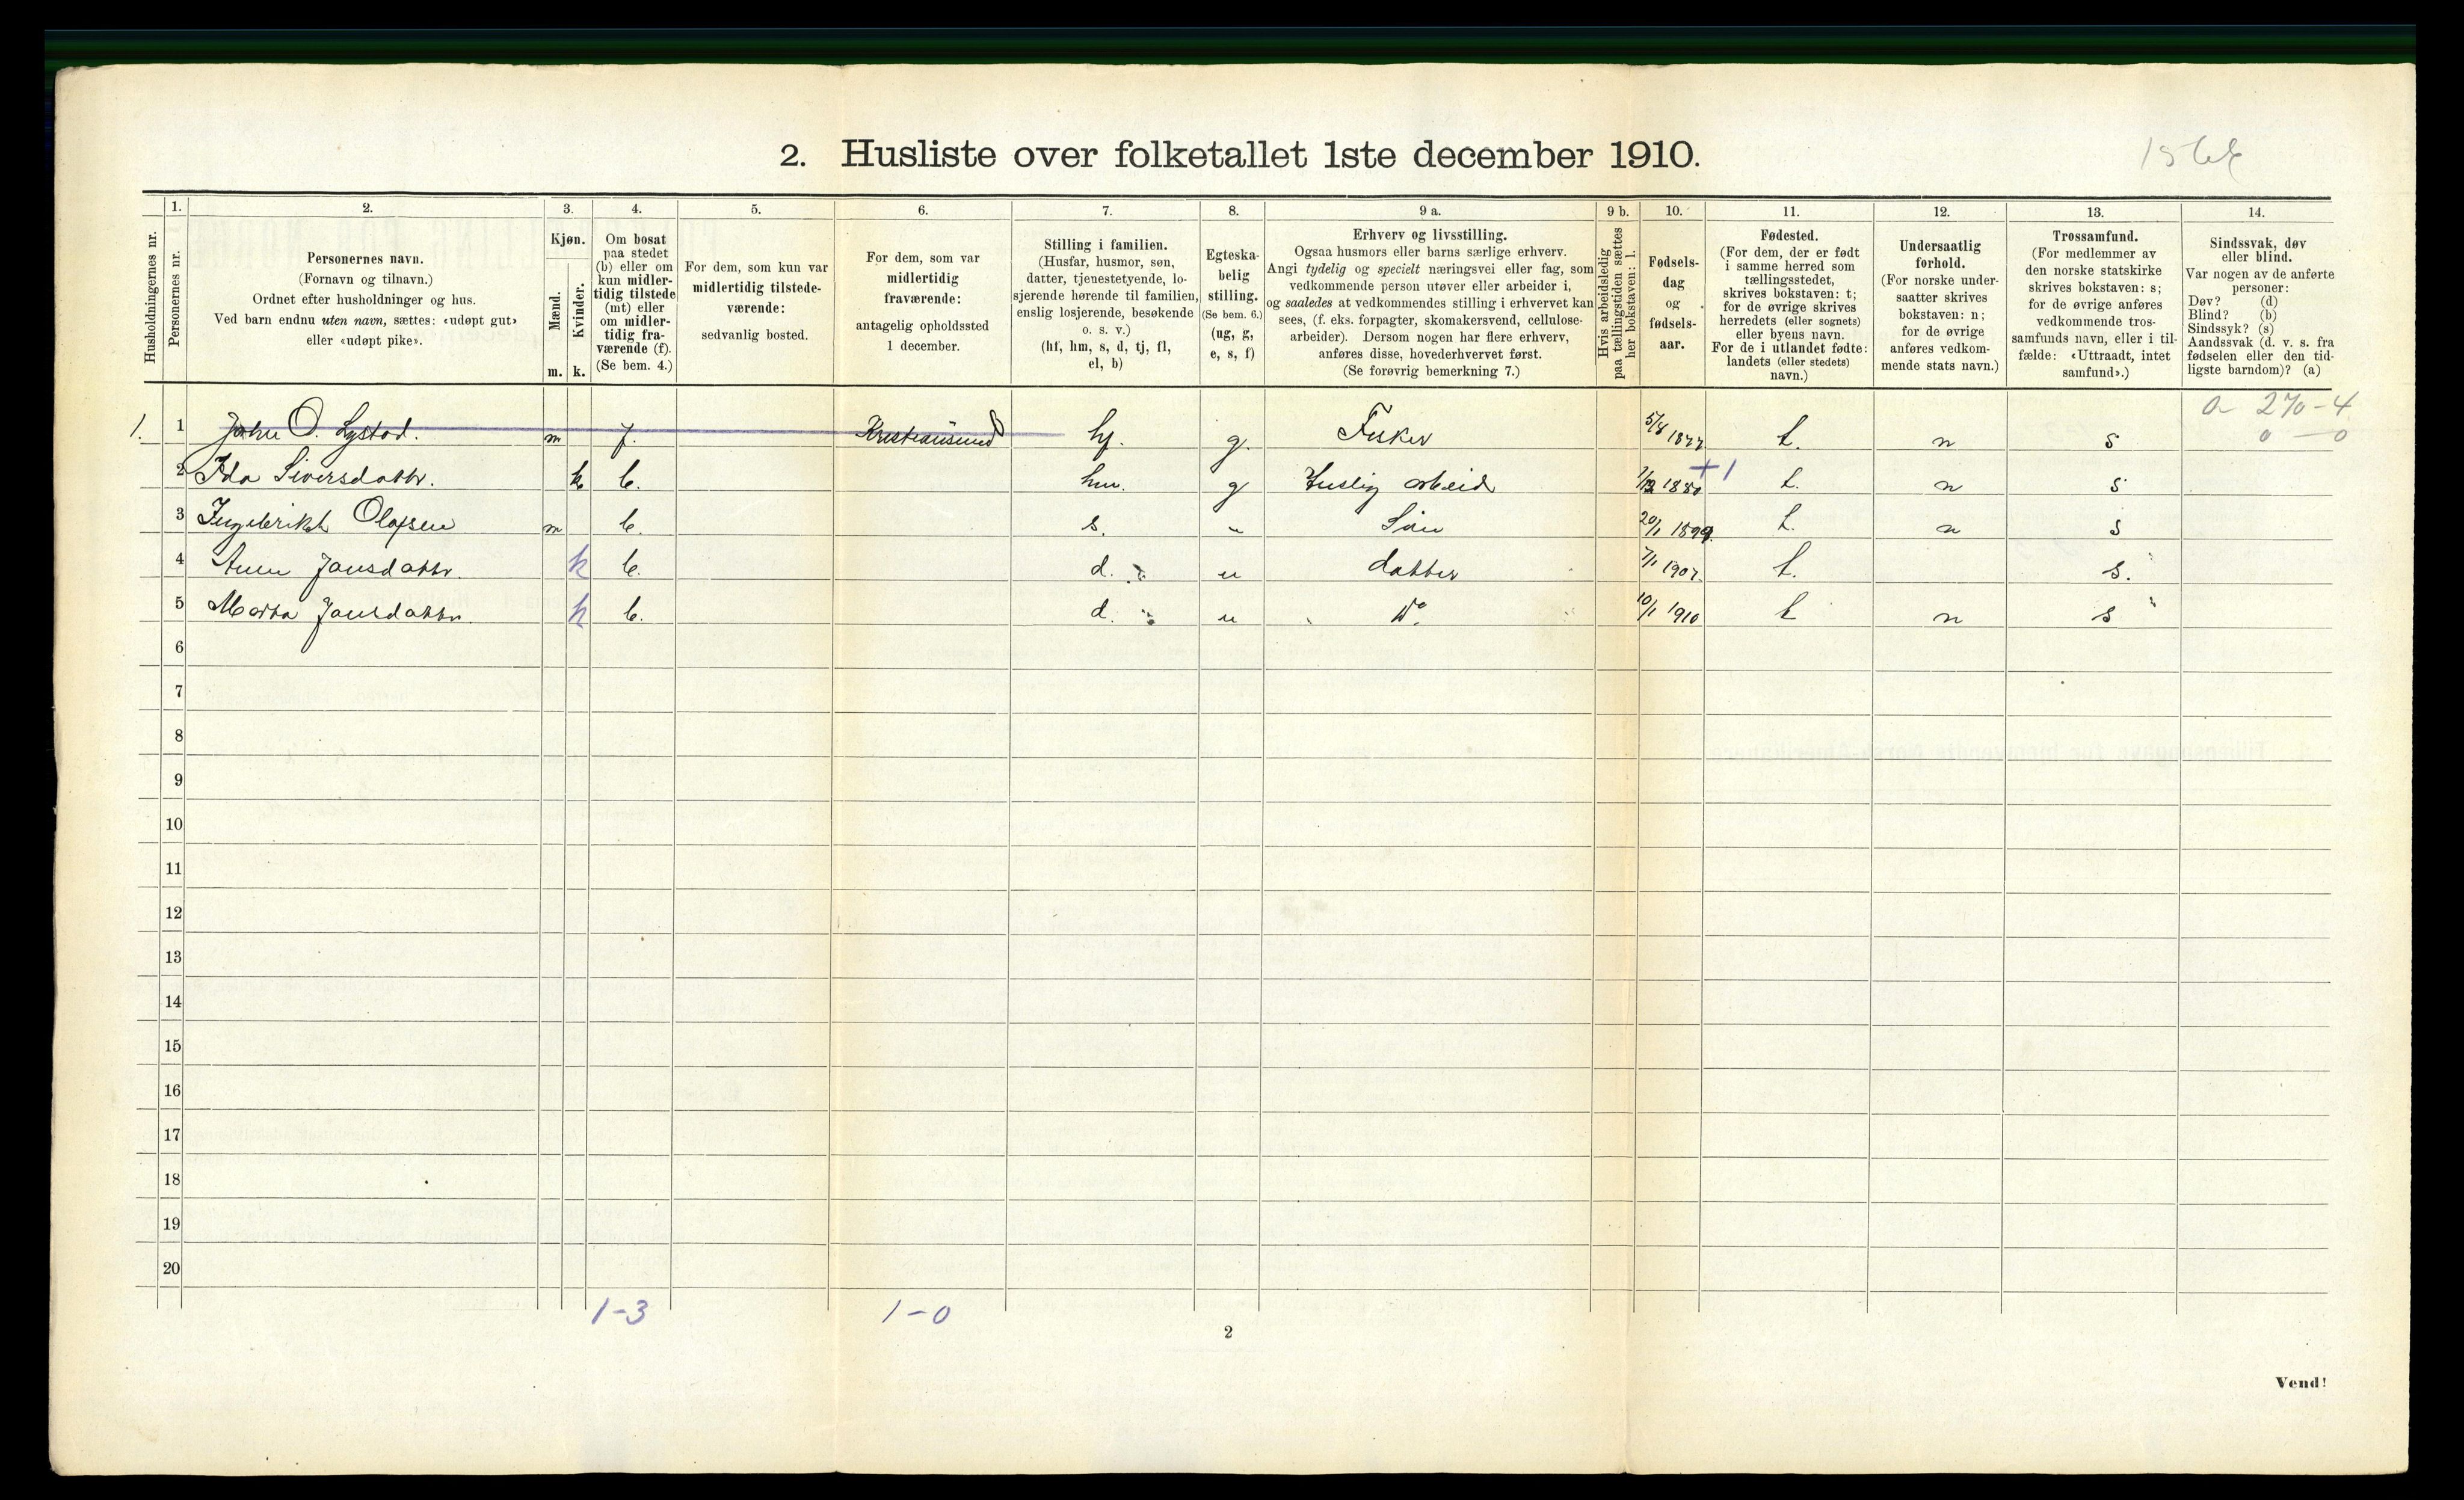 2. Husliste over folketallet 1ste december 1910.
1. 2. 3. 4. 5. 6. 7. 8. 9 a. 9 b. 10. 11. 12. 13. 14.
Husholdningernes nr.
Personernes nr.
Personernes navn.
(Fornavn og tilnavn.)
Ordnet efter husholdninger og hus.
Ved barn endnu uten navn, sættes: «udøpt gut»
eller «udøpt pike».
Kjøn.
Mænd.
Kvinder.
m. k.
Om bosat
paa stedet
(b) eller om
kun midler-
tidig tilstede
(mt) eller
om midler-
tidig fra-
værende (f).
(Se bem. 4.)
For dem, som kun var
midlertidig tilstede-
værende:
sedvanlig bosted.
For dem, som var
midlertidig
fraværende:
antagelig opholdssted
1 december.
Stilling i familien.
(Husfar, husmor, søn,
datter, tjenestetyende, lo-
sjerende hørende til familien,
enslig losjerende, besøkende
o. s. v.)
(hf, hm, s, d, tj, fl,
el, b)
Egteska-
belig
stilling.
(Se bem. 6.)
(ug, g,
e, s, f)
Erhverv og livsstilling.
Ogsaa husmors eller barns særlige erhverv.
Angi tydelig og specielt næringsvei eller fag, som
vedkommende person utøver eller arbeider i,
og saaledes at vedkommendes stilling i erhvervet kan
sees, (f. eks. forpagter, skomakersvend, cellulose-
arbeider). Dersom nogen har flere erhverv,
anføres disse, hovederhvervet først.
(Se forøvrig bemerkning 7.)
Hvis arbeidsledig
paa tællingstiden sættes
her bokstaven: l.
Fødsels-
dag
og
fødsels-
aar.
Fødested.
(For dem, der er født
i samme herred som
tællingsstedet,
skrives bokstaven: t;
for de øvrige skrives
herredets (eller sognets)
eller byens navn.
For de i utlandet fødte:
landets (eller stedets)
navn.)
Undersaatlig
forhold.
(For norske under-
saatter skrives
bokstaven: n;
for de øvrige
anføres vedkom-
mende stats navn.)
Trossamfund.
(For medlemmer av
den norske statskirke
skrives bokstaven: s;
for de øvrige anføres
vedkommende tros-
samfunds navn, eller i til-
fælde: «Uttraadt, intet
samfund».)
Sindssvak, døv
eller blind.
Var nogen av de anførte
personer:
Døv? (d)
Blind? (b)
Sindssyk? (s)
Aandssvak (d. v. s. fra
fødselen eller den tid-
ligste barndom)? (a)
270-4
0-0
1. 1 John O. Lystad. m f. Kristiansund hf. g. Fisker 1877 t. n s
2 Ida Siversdattr. k b. hm. g Huslig arbeid 1880 +1 t. n s
3 Ingebrikt Olafsen m b. s. Sön 20/1 1899 t. n s
4 Anna Jansdattr. k b. d. u datter 7/1 1907 t. s.
5 Marta Jansdattr. k b. d. u Do. 10/1 1910 t n s
6
7
8
9
10
11
12
13
14
15
16
17
18
19
20
1-3 1-0
2
Vend!